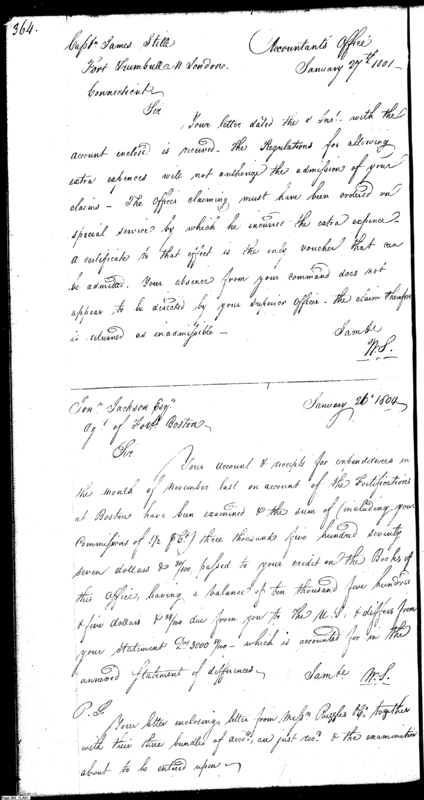 364.
Capt. James Still
Accountants Office
Fort Trumbull N London.
January 27th 1801
Connecticut
Sir
Your letter dated the Inst. with the
account enclosed is received. the Regulations for allowing
extra expences will not authorize the admission of your
claims - The Officer claiming must have been ordered on
special service by which he incurred the extra expence -
a certificate to that effect is the only voucher that can
be admitted. Your absence from your command does not
appear to be directed by your superior Officer - the claim therefore
is returned as inadmissible -
I am &c
W.S.
Jonn. Jackson Esqr.
January 26th
Agt. of Fortf. Boston
Sir
Your account & receipts for in
the month of November last on account of the Fortifications
at Boston have been examined & the sum of (including your
Commissions of ) three thousand five hundred seventy
seven dollars & /100 passed to your credit on the Books of
this Office, leaving a balance of ten thousand five hundred
& five dollars & /100 due from you to the U.S. & differs from
your statement 3000 - which is accounted for in the
annexed statement of differences.
I am &c W.S.
P.S.
Your letter enclosing letter from Messrs. together
with their three bundles of accots. are just recd. & the examination
about to be entered upon -